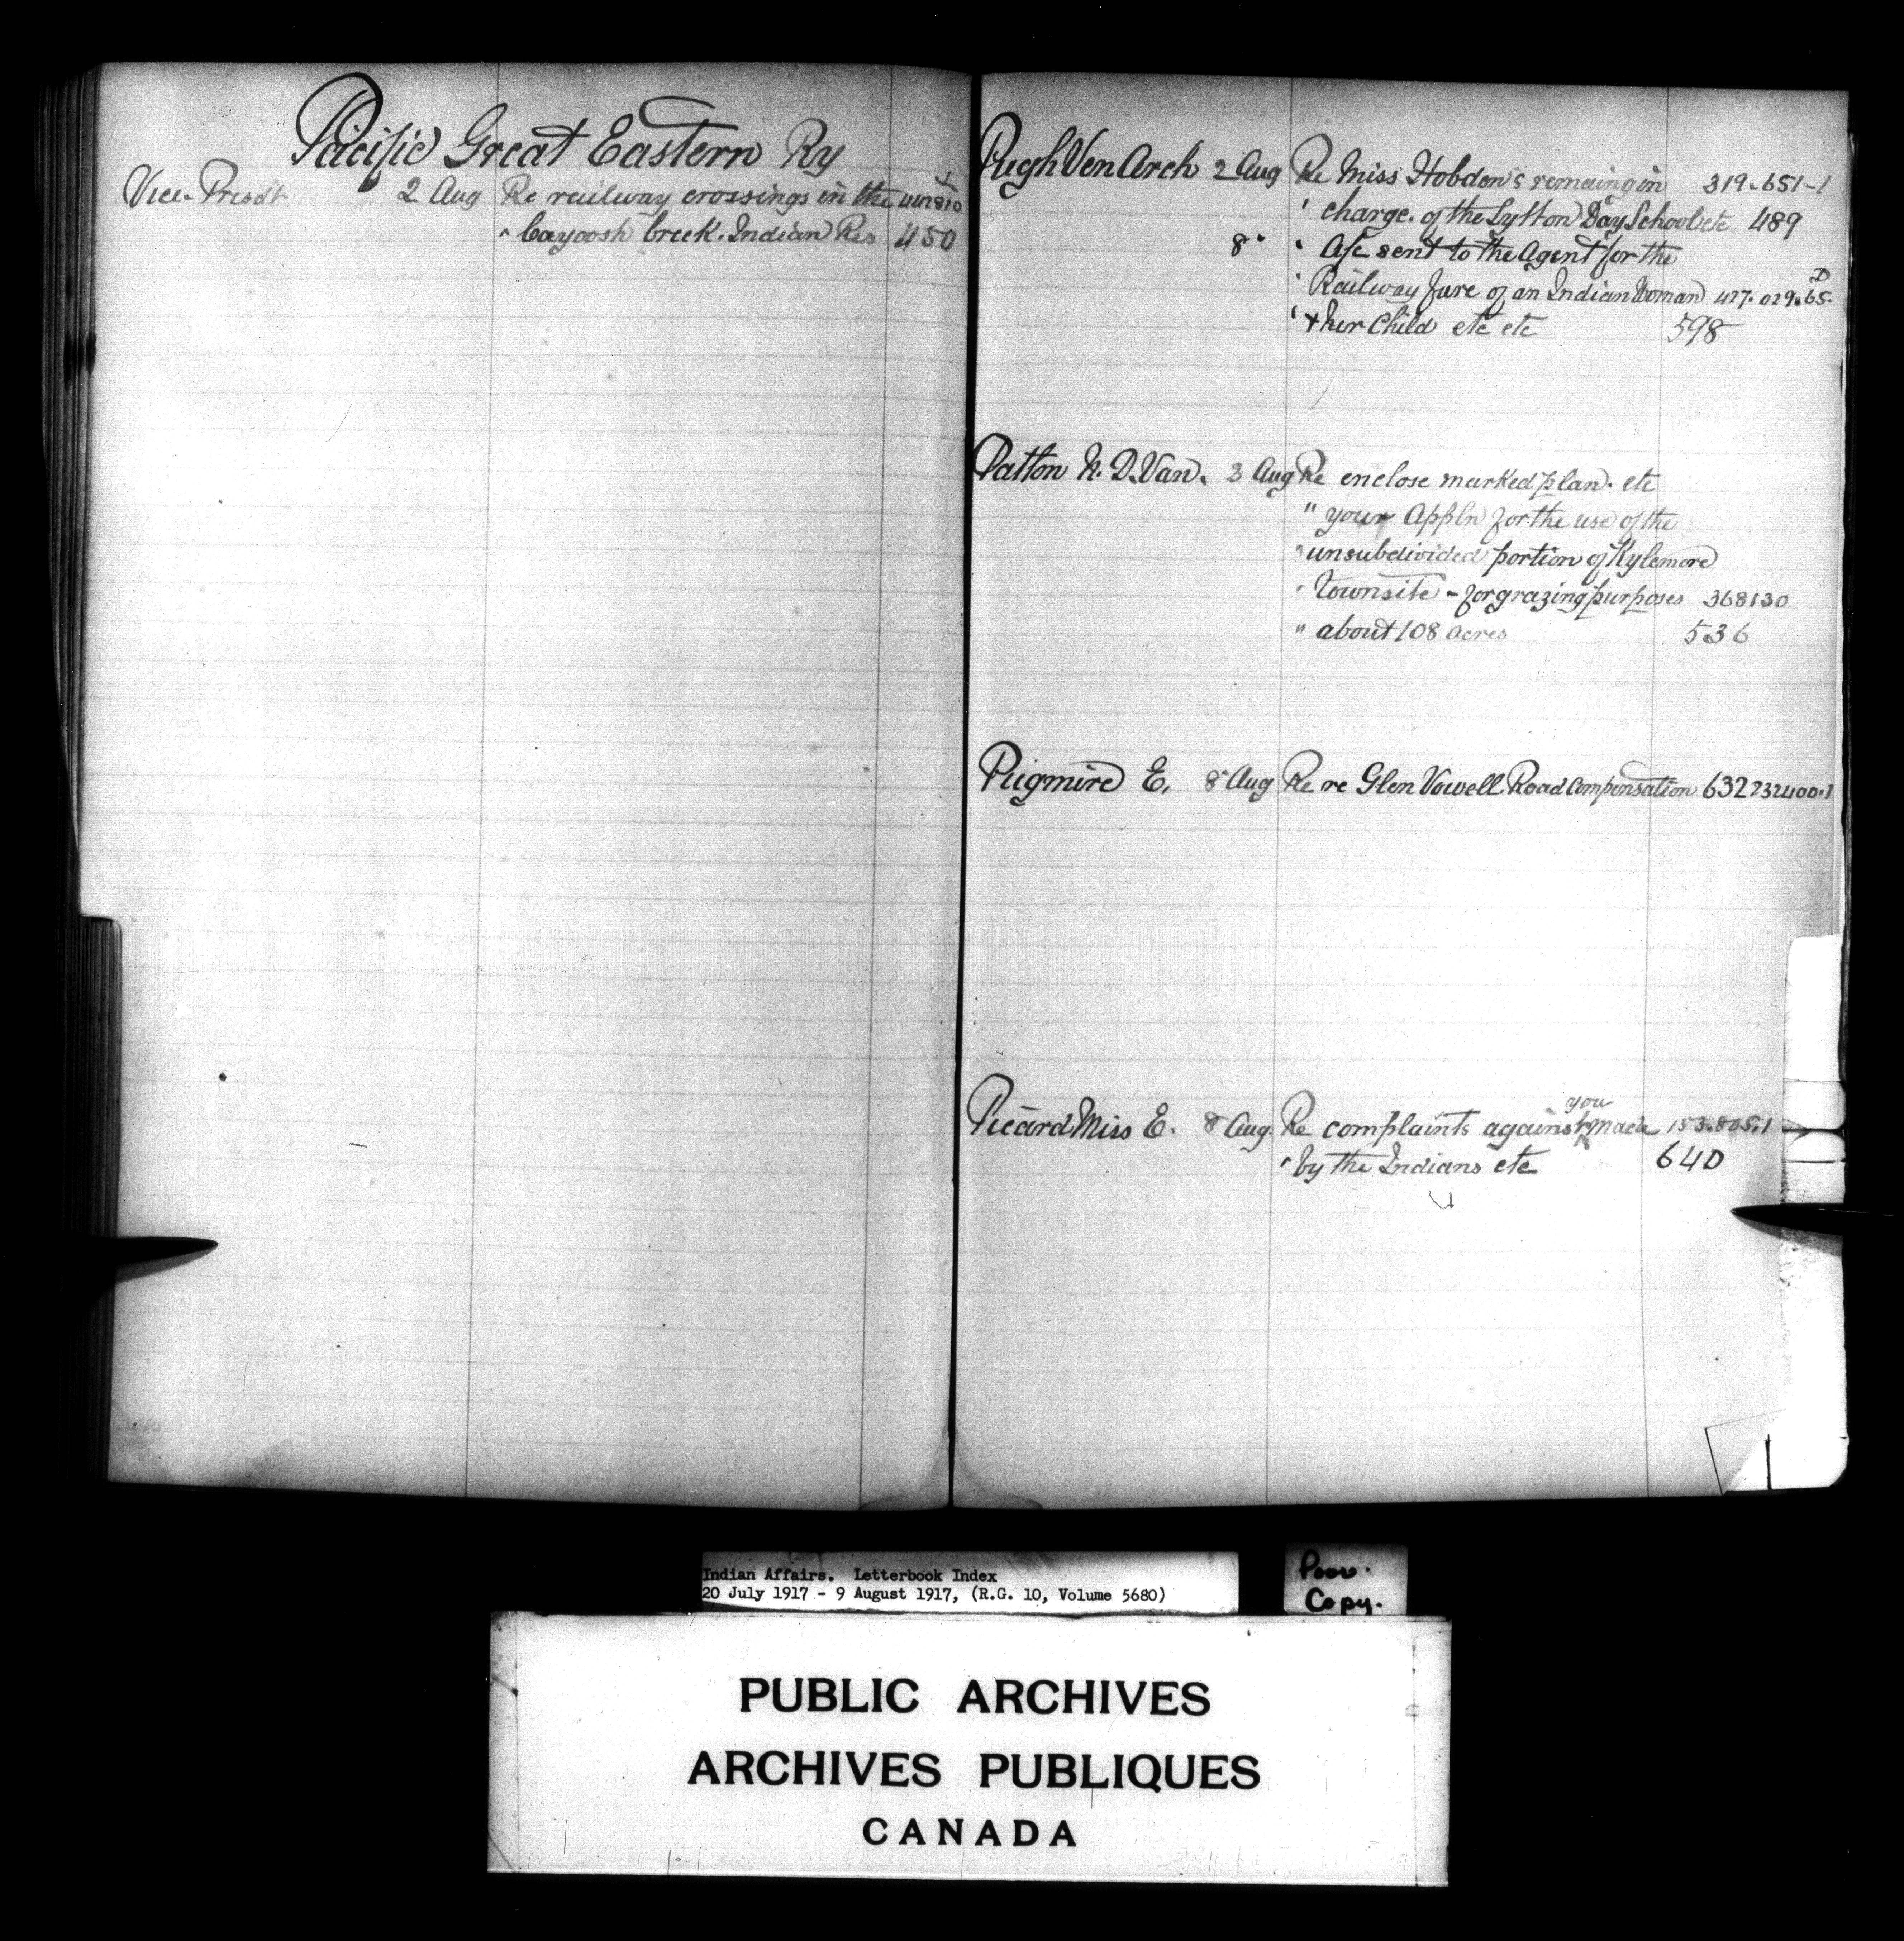 Pacific Great Eastern Ry
Vice-Presdt 2 Aug Re railway crossings in the
" Cayoosh Creek. Indian Res 450
Pugh Ven Arch 2 Aug Re Miss Hobden's remaing in 319-651-1
' charge. of the Lytton Day School etc 489
8 " ' A/c sent to the Agent for the
' Railway fare of an Indian Woman 427.029.65.D
' + her Child etc etc 598
Patton N. D. Van. 3 Aug Re enclose marked plan. etc
" your Appln for the use of the
" unsubdivided portion of Kylemore
" Townsite - for grazing purposes 368130
" about 108 acres 536
Pugmire E. 8 Aug Re re Glen Vowell Road Compensation 632 232400.1
Picard Miss E. 8 Aug. Re complaints against you made 153.805.1
" by the Indians etc 640
Indian Affairs. Letterbook Index
20 July 1917 - 9 August 1917, (R.G. 10, Volume 5680)
Poor.
Copy.
PUBLIC ARCHIVES
ARCHIVES PUBLIQUES
CANADA